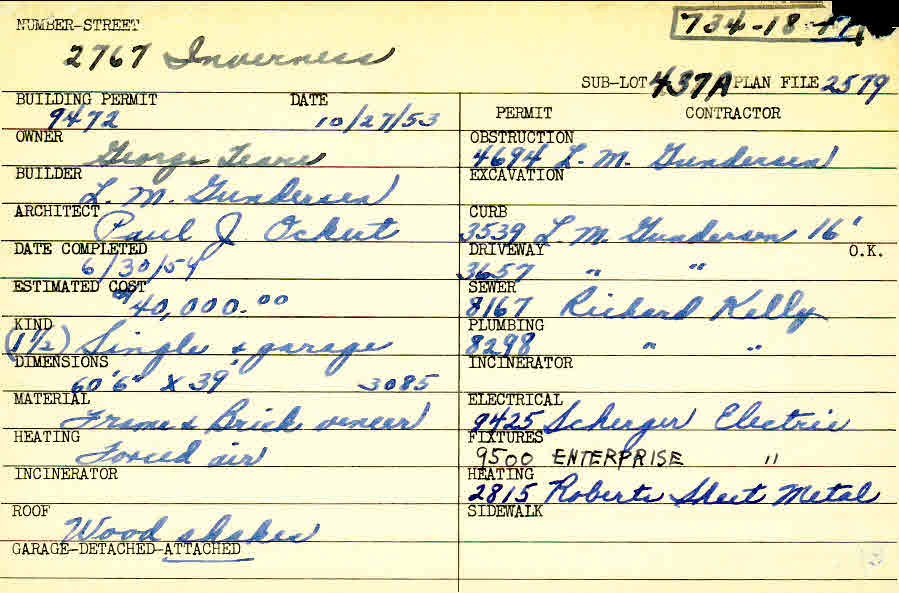 NUMBER-STREET
734-18-
2767 Inverness
SUB-LOT 437A PLAN FILE 2579
BUILDING PERMIT DATE
9472 10/27/53
OWNER
George Teare
BUILDER
L. M. Gundersen
ARCHITECT
Paul J Ockut
DATE COMPLETED
6/30/54
ESTIMATED COST
$40,000.00
KIND
(1 1/2) Single & garage
DIMENSIONS
60'6" X 39' 3085
MATERIAL
Frame & Brick veneer
HEATING
Forced air
INCINERATOR
ROOF
Wood shakes
GARAGE-DETACHED-ATTACHED
PERMIT CONTRACTOR
OBSTRUCTION
4694 L. M. Gundersen
EXCAVATION
CURB
3539 L. M. Gundersen 16'
DRIVEWAY O.K.
3657 " "
SEWER
8167 Richard Kelly
PLUMBING
8298 " "
INCINERATOR
ELECTRICAL
9425 Scherger Electric
FIXTURES
9500 ENTERPRISE "
HEATING
2815 Roberts Sheet Metal
SIDEWALK